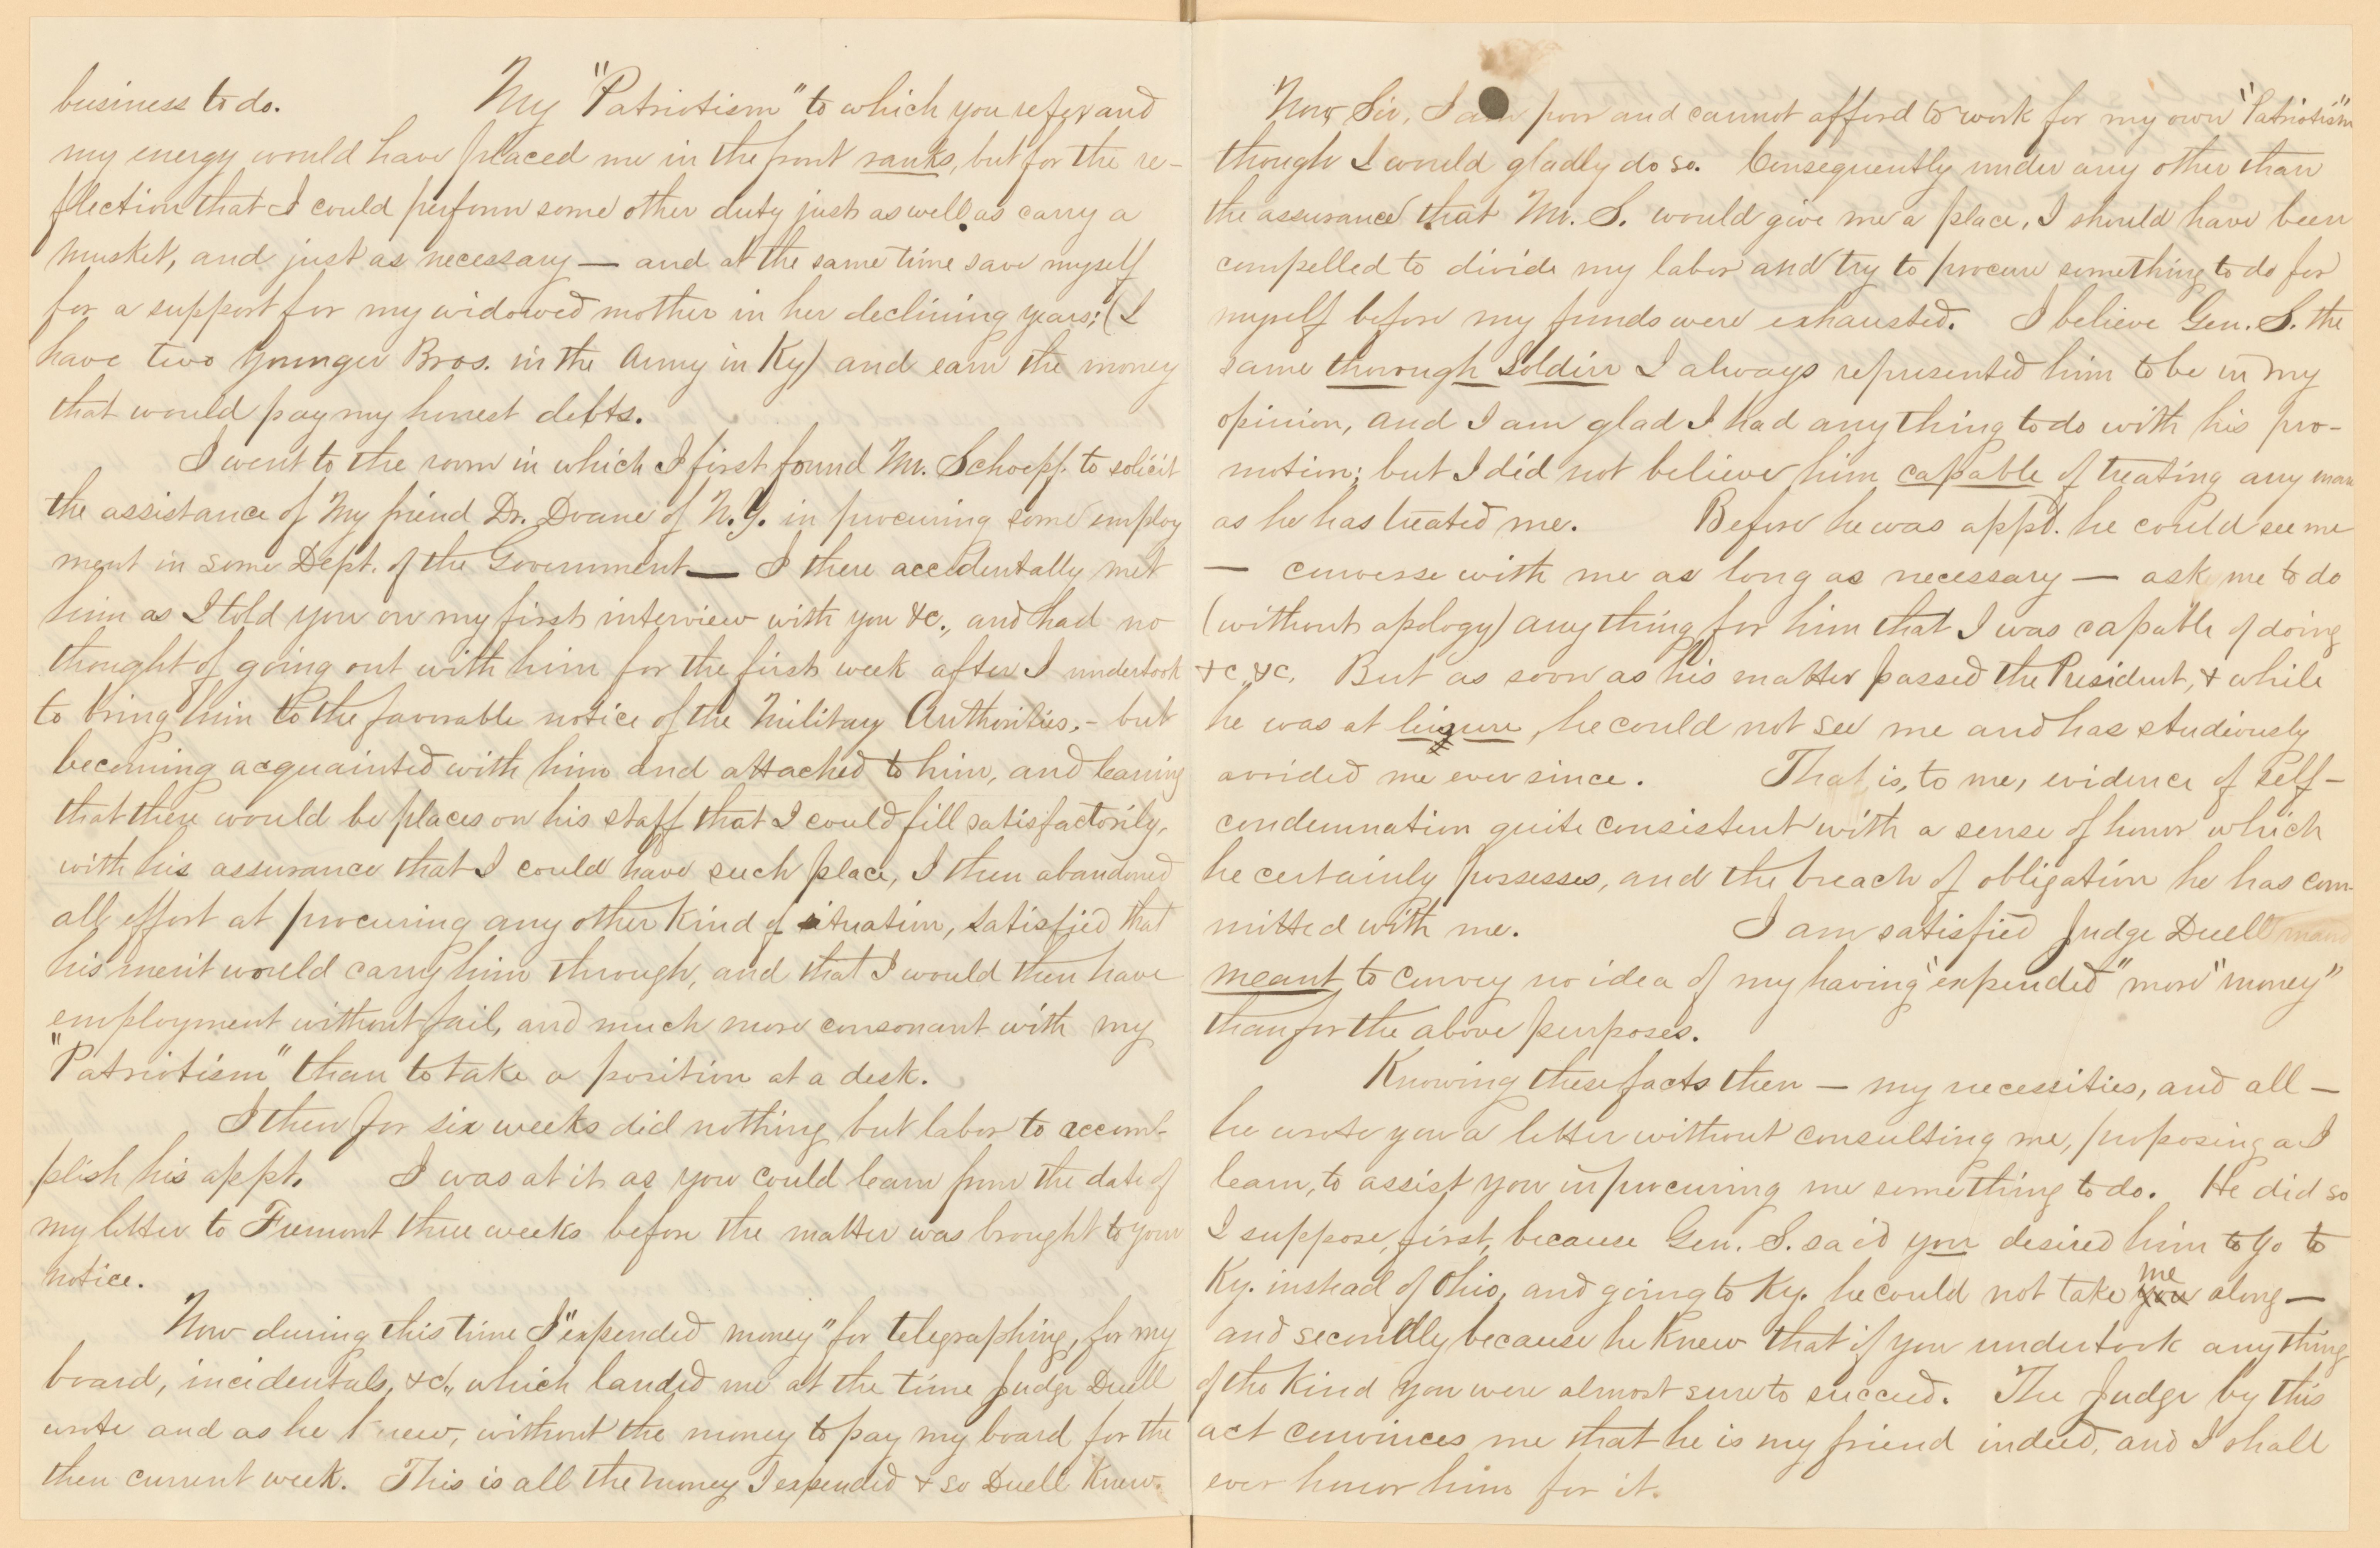 business to do. My "Patriotism" to which you refer and
my energy would have placed me in the front ranks, but for the re-
flection that I could perform some other duty just as well as carry a
musket, and just as necessary — and at the same time save myself
for a support for my widowed mother in her declining years; (I
have two younger Bros. in the Army in Ky) and earn the money
that would pay my honest debts.
I went to the room in which I first found Mr. Schoepf to solicit
the assistance of My friend Dr. Doane of N.Y. in procuring some employ
ment in some Dept. of the Government — I there accedentally met
him as I told you on my first interview with you &c., and had no
thought of going out with him for the first week after I undertook
to bring him to the favorable notice of the Military Authorities, - but
becoming acquainted with him and attached to him, and learning
that there would be places on his staff that I could fill satisfactorily,
with his assurance that I could have such place, I then abandoned
all effort at procuring any other kind of situation, satisfied that
his merit would carry him through, and that I would then have
employment without fail, and much more consonant with my
"Patriotism" than to take a position at a desk.
I then for six weeks did nothing but labor to accom-
plish his appt. I was at it as you could learn from the date of
my letter to Fremont three weeks before the matter was brought to your
notice.
Now during this time I "expended money" for telegraphing, for my
board, incidentals, &c., which landed me at the time Judge Duell
wrote and as he knew, without the money to pay my board for the
then current week. This is all the money I expended & so Duell knew.
Now, Sir, I am poor and cannot afford to work for my own "Patriotism"
though I would gladly do so. Consequently under any other than
the assurance that Mr. S. would give me a place, I should have been
compelled to divide my labor and try to procure something to do for
myself before my funds were exhausted. I believe Gen. S. the
same thorough Soldier I always represented him to be in my
opinion, and I am glad I had any thing to do with his pro-
motion; but I did not believe him capable of treating any man
as he has treated me. Before he was appt. he could see me
— converse with me as long as necessary — ask me to do
(without apology) any thing for him that I was capable of doing
&c. &c. But as soon as his matter passed the President, & while
he was at leisure, he could not see me and has studiously
avoided me ever since. That is, to me, evidence of self-
condemnation quite consistent with a sense of honor which
he certainly possesses, and the breach of obligation he has com-
mitted with me. I am satisfied Judge Duell
meant to convey no idea of my having "expended" more "money"
than for the above purposes.
Knowing these facts then — my necessities, and all —
he wrote you a letter without consulting me, proposing as I
learn, to assist you in procuring me something to do. He did so
I suppose, first, because Gen. S. said you desired him to go to
Ky. instead of Ohio, and going to Ky. he could not take me along —
and secondly because he knew that if you undertook any thing
of the kind you were almost sure to succeed. The Judge by this
act convinces me that he is my friend indeed, and I shall
ever honor him for it.